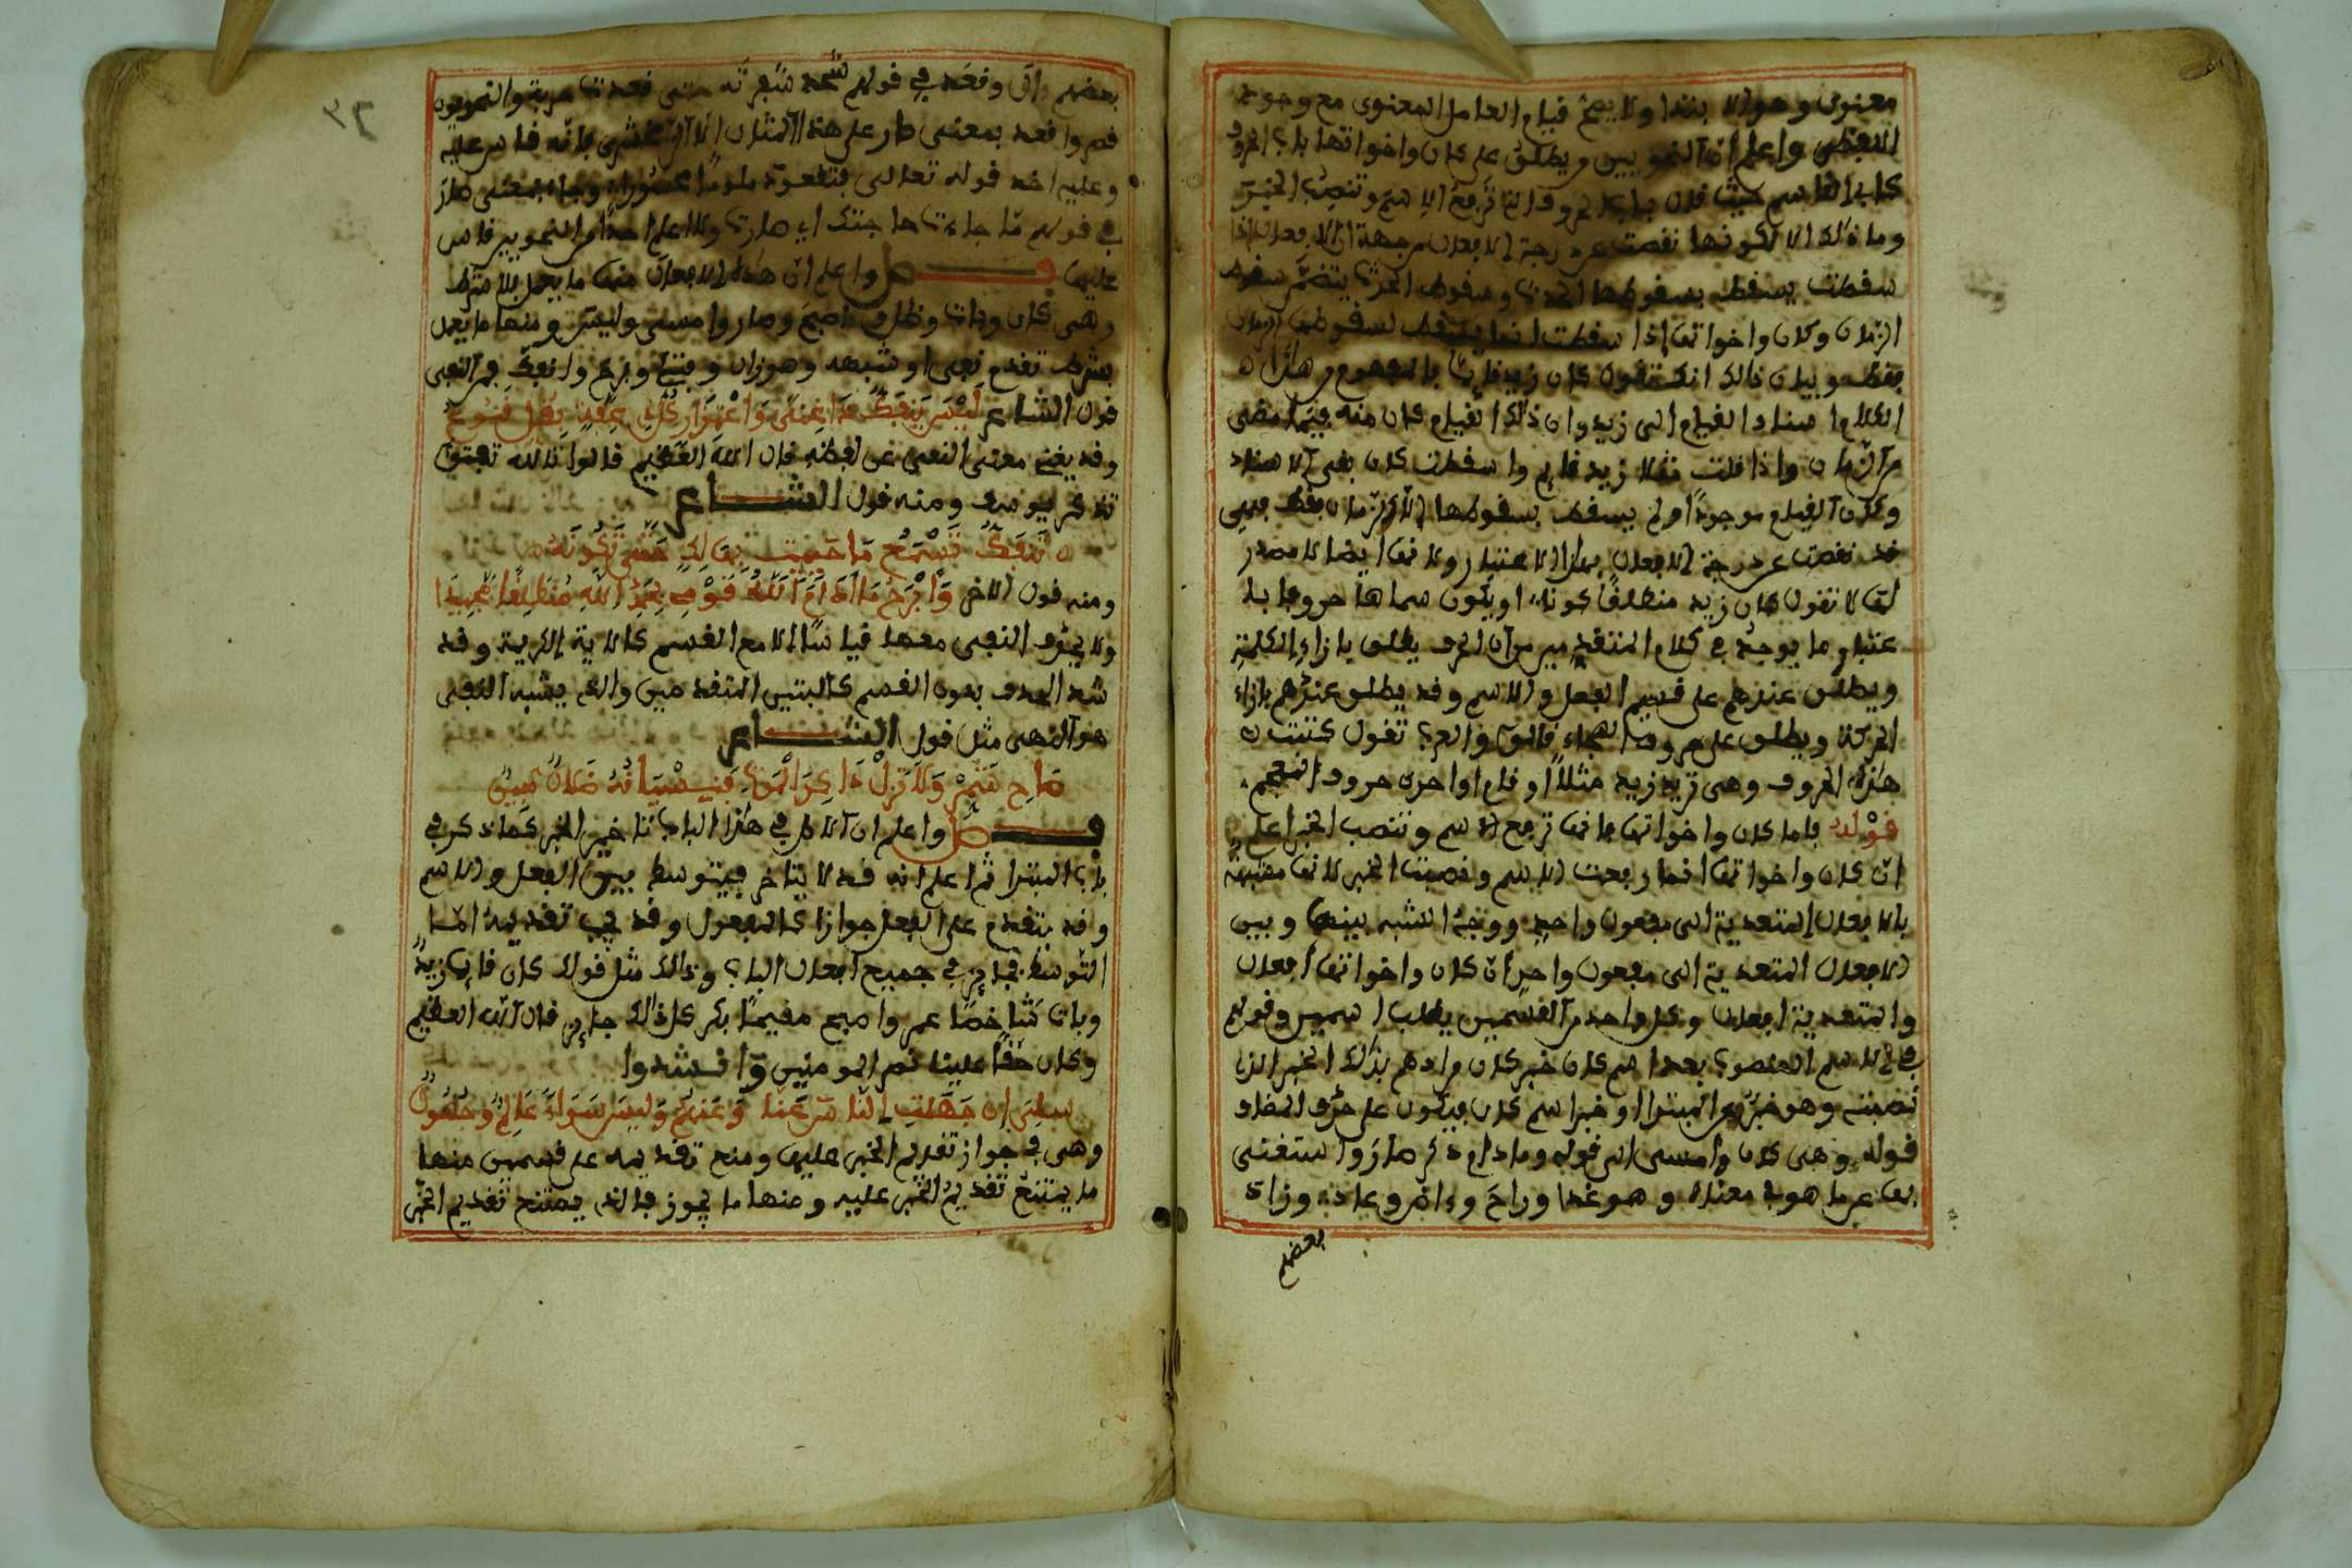 معنوي وهو الابتدا ولا يصح قيام العامل المعنوي مع وجود
اللفظي واعلم ان النحويين ويطلق على كان واخواتها باب الحروف
كابي القاسم حيث قال باب الحروف التي ترفع الاسم وتنصب الخبر
وما ذلك الا لكونها نقصت عن درجة الافعال من جهة ان الافعال اذا
سقطت يسقط بسقوطها الحدث وسقوط الحدث يتضمن سقوط
الزمان وكان واخواتها اذا سقطت انما يسقط لسقوطها الزمان
فقط وبيان ذالك انك تقول كان زيد قايما بالمفهوم من هاذا
الكلام اسناد القيام الى زيد وان ذلك القيام كان منه فيما مضى
من الزمان واذا قلت مثلا زيد قايم واسقطت كان بقي الاسناد
وكان القيام موجودا ولم يسقط بسقوطها الا الزمان فقط فهي
قد نقصت عن درجة الافعال بهذا الاعتبار ولانها ايضا لا مصدر
لها لا تقول كان زيد منطلقا كونا او يكون سماها حروفا با
عتبار ما يوجد في كلام المتقدمين من ان الحرف يطلق بازاء الكلمة
ويطلق عندهم على قسيم الفعل والاسم وقد يطلق عندهم بازاء
الحركة ويطلق على حروف الهجاء قالوا والعرب تقول كتبت
هاذه الحروف وهي تريد زيد مثلا او قام او احرف حروف المعجم
قوله باما كان واخواتها فانها ترفع الاسم وتنصب الخبر اعلم
ان كان واخواتها انما رفعت الاسم ونصبت الخبر لانها مشبهة
بالافعال المتعدية الى مفعول واحد ووجه الشبه بينها وبين
الافعال المتعدية الى مفعول واحد ان كان واخواتها افعال
والمتعدية افعال وكل واحد من القسمين يطلب اسمين وقولهم
في الاسم المنصوب بعدا هم كان خبر كان مرادهم بذلك الخبر الذي
نصبته وهو خبر المبتدا او خبر اسم كان فيكون على حذف المضاف
قوله وهي كان وامسى الى قوله ومادام ذكر صار واستغنى
بها عن ما هو في معناه وهو غدا وراح وءاض وعاد وزاد
بعضهم
بعضهم وقعد في قولهم شحذ شفرته حتى قعدت حربة والنحويون
قصروا قعد بمعنى صار على هذا المثال الا الزمخشري فانه قاس عليه
وعليه اخذ قوله تعالى فتقعد ملوما محسورا وجاء بمعنى صار
في قولهم ما جاءت حاجتك اي صارت ولا اعلم احدا من النحويين قاس
عليها فصل واعلم ان هاذه الافعال منها ما يعمل بلا شرط
وهي كان وبات وظل واصبح وصار وامسى وليس ومنها ما يعمل
بشرط تقدم نفي او شبهه وهو زال وفتئ وبرح وانفك فمن النفي
قول الشاعر ليس ينفك ذا غنى واعتزاز كل ذي عفة مقل قنوع
وقد يغني معنى النفي عن لفظه قال الله العظيم قالوا تالله تفتؤ
تذكر يوسف ومنه قول الشاعر
تنفك تسمع ما حييت بهالك حتى تكونه
ومنه قول الاخر وابرح ما ادام الله قومي بحمد الله منتطقا مجيدا
ولا يحذف النفي معها قياسا الا مع القسم كالاية الكريمة وقد
شذ الحذف بدون القسم كالبتين المتقدمين والذي يشبه النفي
هو النهي مثل قول الشاعر
صاح شمر ولا تزل ذاكر الموت فنسيانه ضلال مبين
فصل واعلم ان الاصل في هاذا الباب تاخير الخبر كما ذكر في
باب المبتدا ثم اعلم انه قد لا يتاخر فيتوسط بين الفعل والاسم
وقد يتقدم على الفعل جوازا كالمفعول وقد يجب تقديمه اما
التوسط فجايز في جميع افعال الباب وذالك مثل قولك كان قايما زيد
وبات شاخصا عمر واصبح مقيما بكر كل ذالك جايز قال الله العظيم
وكان حقا علينا نصر المومنين وانشدوا
سلي ان جهلت الناس عنا وعنهم وليس سواء عالم وجهول
وهي في جواز تقديم الخبر عليها ومنع تقديمه على قسمين منها
ما يمتنع تقديم الخبر عليه ومنها ما يجوز فالذي يمتنع تقديم الخبر